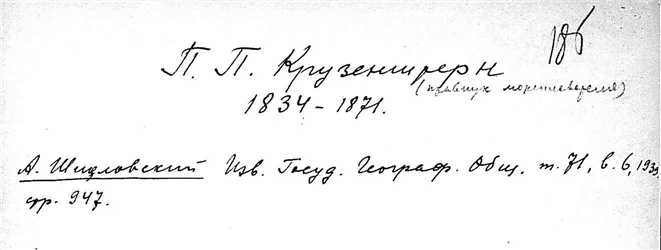 186
П. П. Крузенштерн
(правнук мореплавателя)
1834 – 1871.
А. Шидловский Изв. Госуд. Географ. Общ. т. 71, в. 6, 1939,
стр. 947.